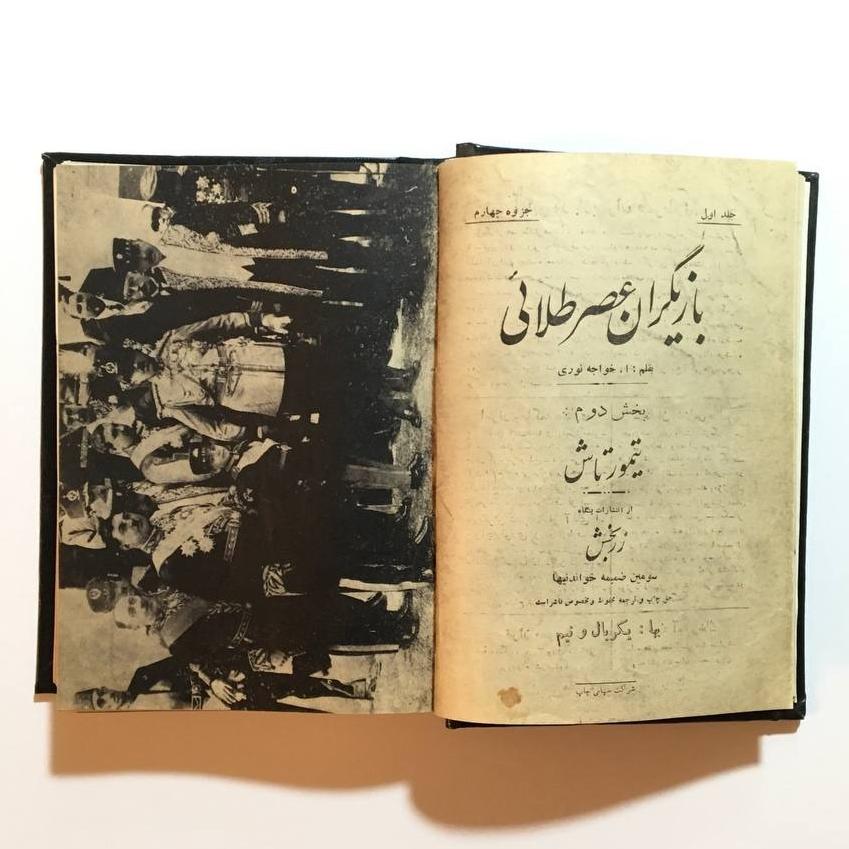 جلد اول
جزوه چهارم
بازیگران عصر طلائی
بقلم : ا . خواجه نوری
بخش دوم :
تیمورتاش
از انتشارات بنگاه
زربخش
سومین ضمیمه خواندنیها
حق چاپ و ترجمه محفوظ و مخصوص ناشر است
بها : یکریال و نیم
شرکت سهامی چاپ